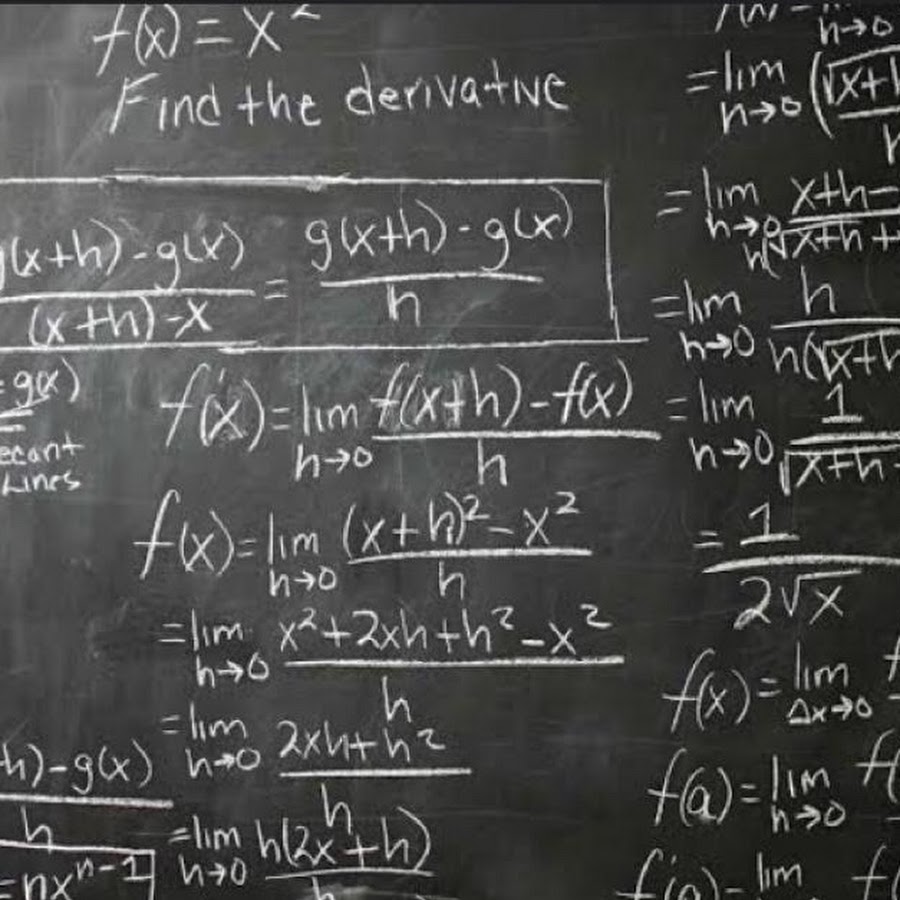 f(x) = x²
Find the derivative
g(x+h) - g(x) / (x+h) - x = g(x+h) - g(x) / h
= g(x)
ecant
Lines
f'(x) = lim h→0 f(x+h) - f(x) / h
f(x) = lim h→0 (x+h)² - x² / h
= lim h→0 x² + 2xh + h² - x² / h
= lim h→0 2xh + h² / h
= lim h→0 h(2x + h)
h) - g(x) / h
= nxⁿ⁻¹
h→0
= lim h→0 (√x+h
= lim h→0 x+h- / h(√x+h +
= lim h→0 h / h(√x+h
= lim h→0 1 / √x+h
= 1 / 2√x
f(x) = lim Δx→0 f
f(a) = lim h→0 f(
f'(a) = lim f(